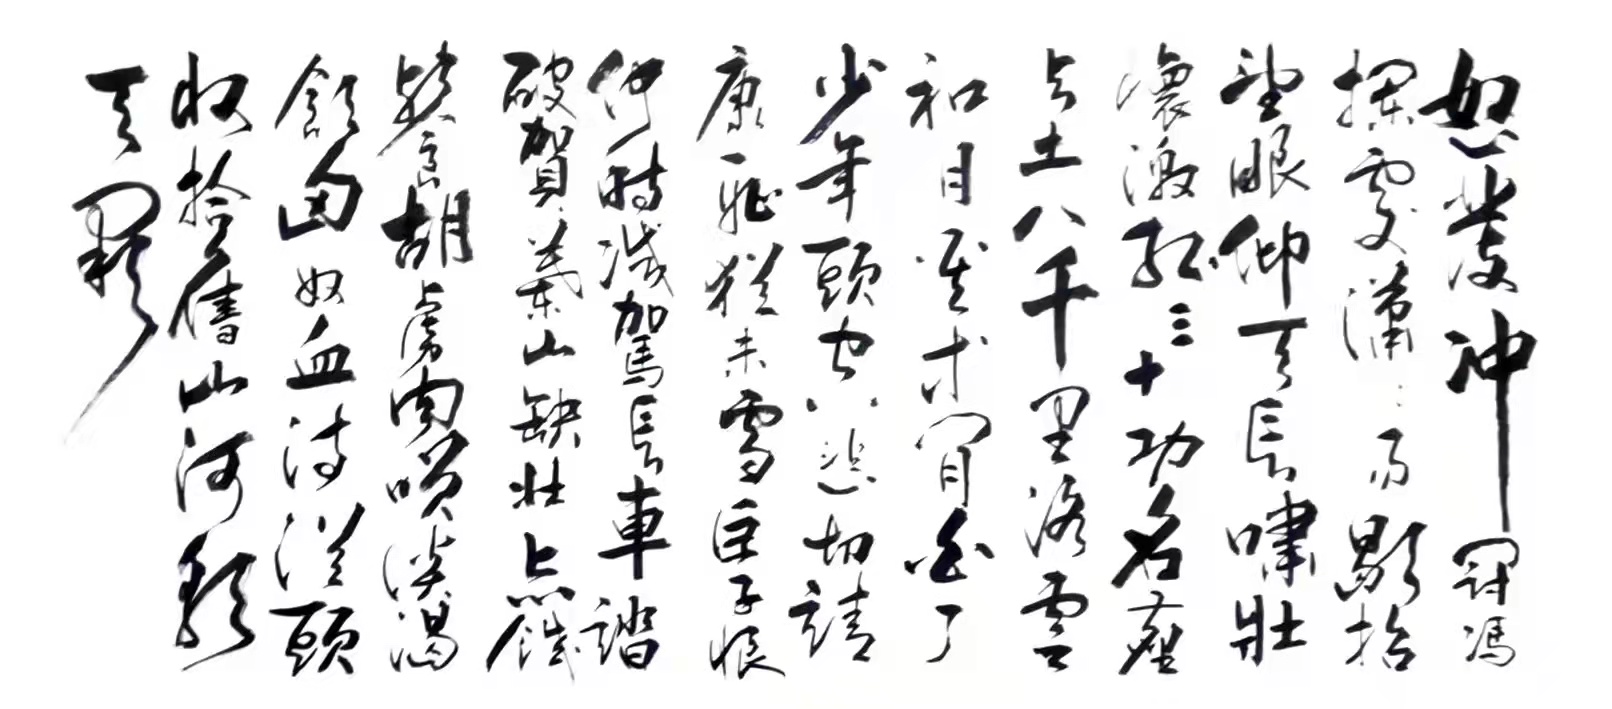 怒髮冲冠馮
欄處瀟瀟雨歇抬
望眼仰天長嘯壯
懷激烈三十功名塵
与土八千里路雲
和月莫等閒白了
少年頭空悲切靖
康耻猶未雪臣子恨
何時滅駕長車踏
破賀蘭山缺壯志饑
餐胡虜肉笑談渴
飲匈奴血待從頭
收拾舊山河朝
天闕